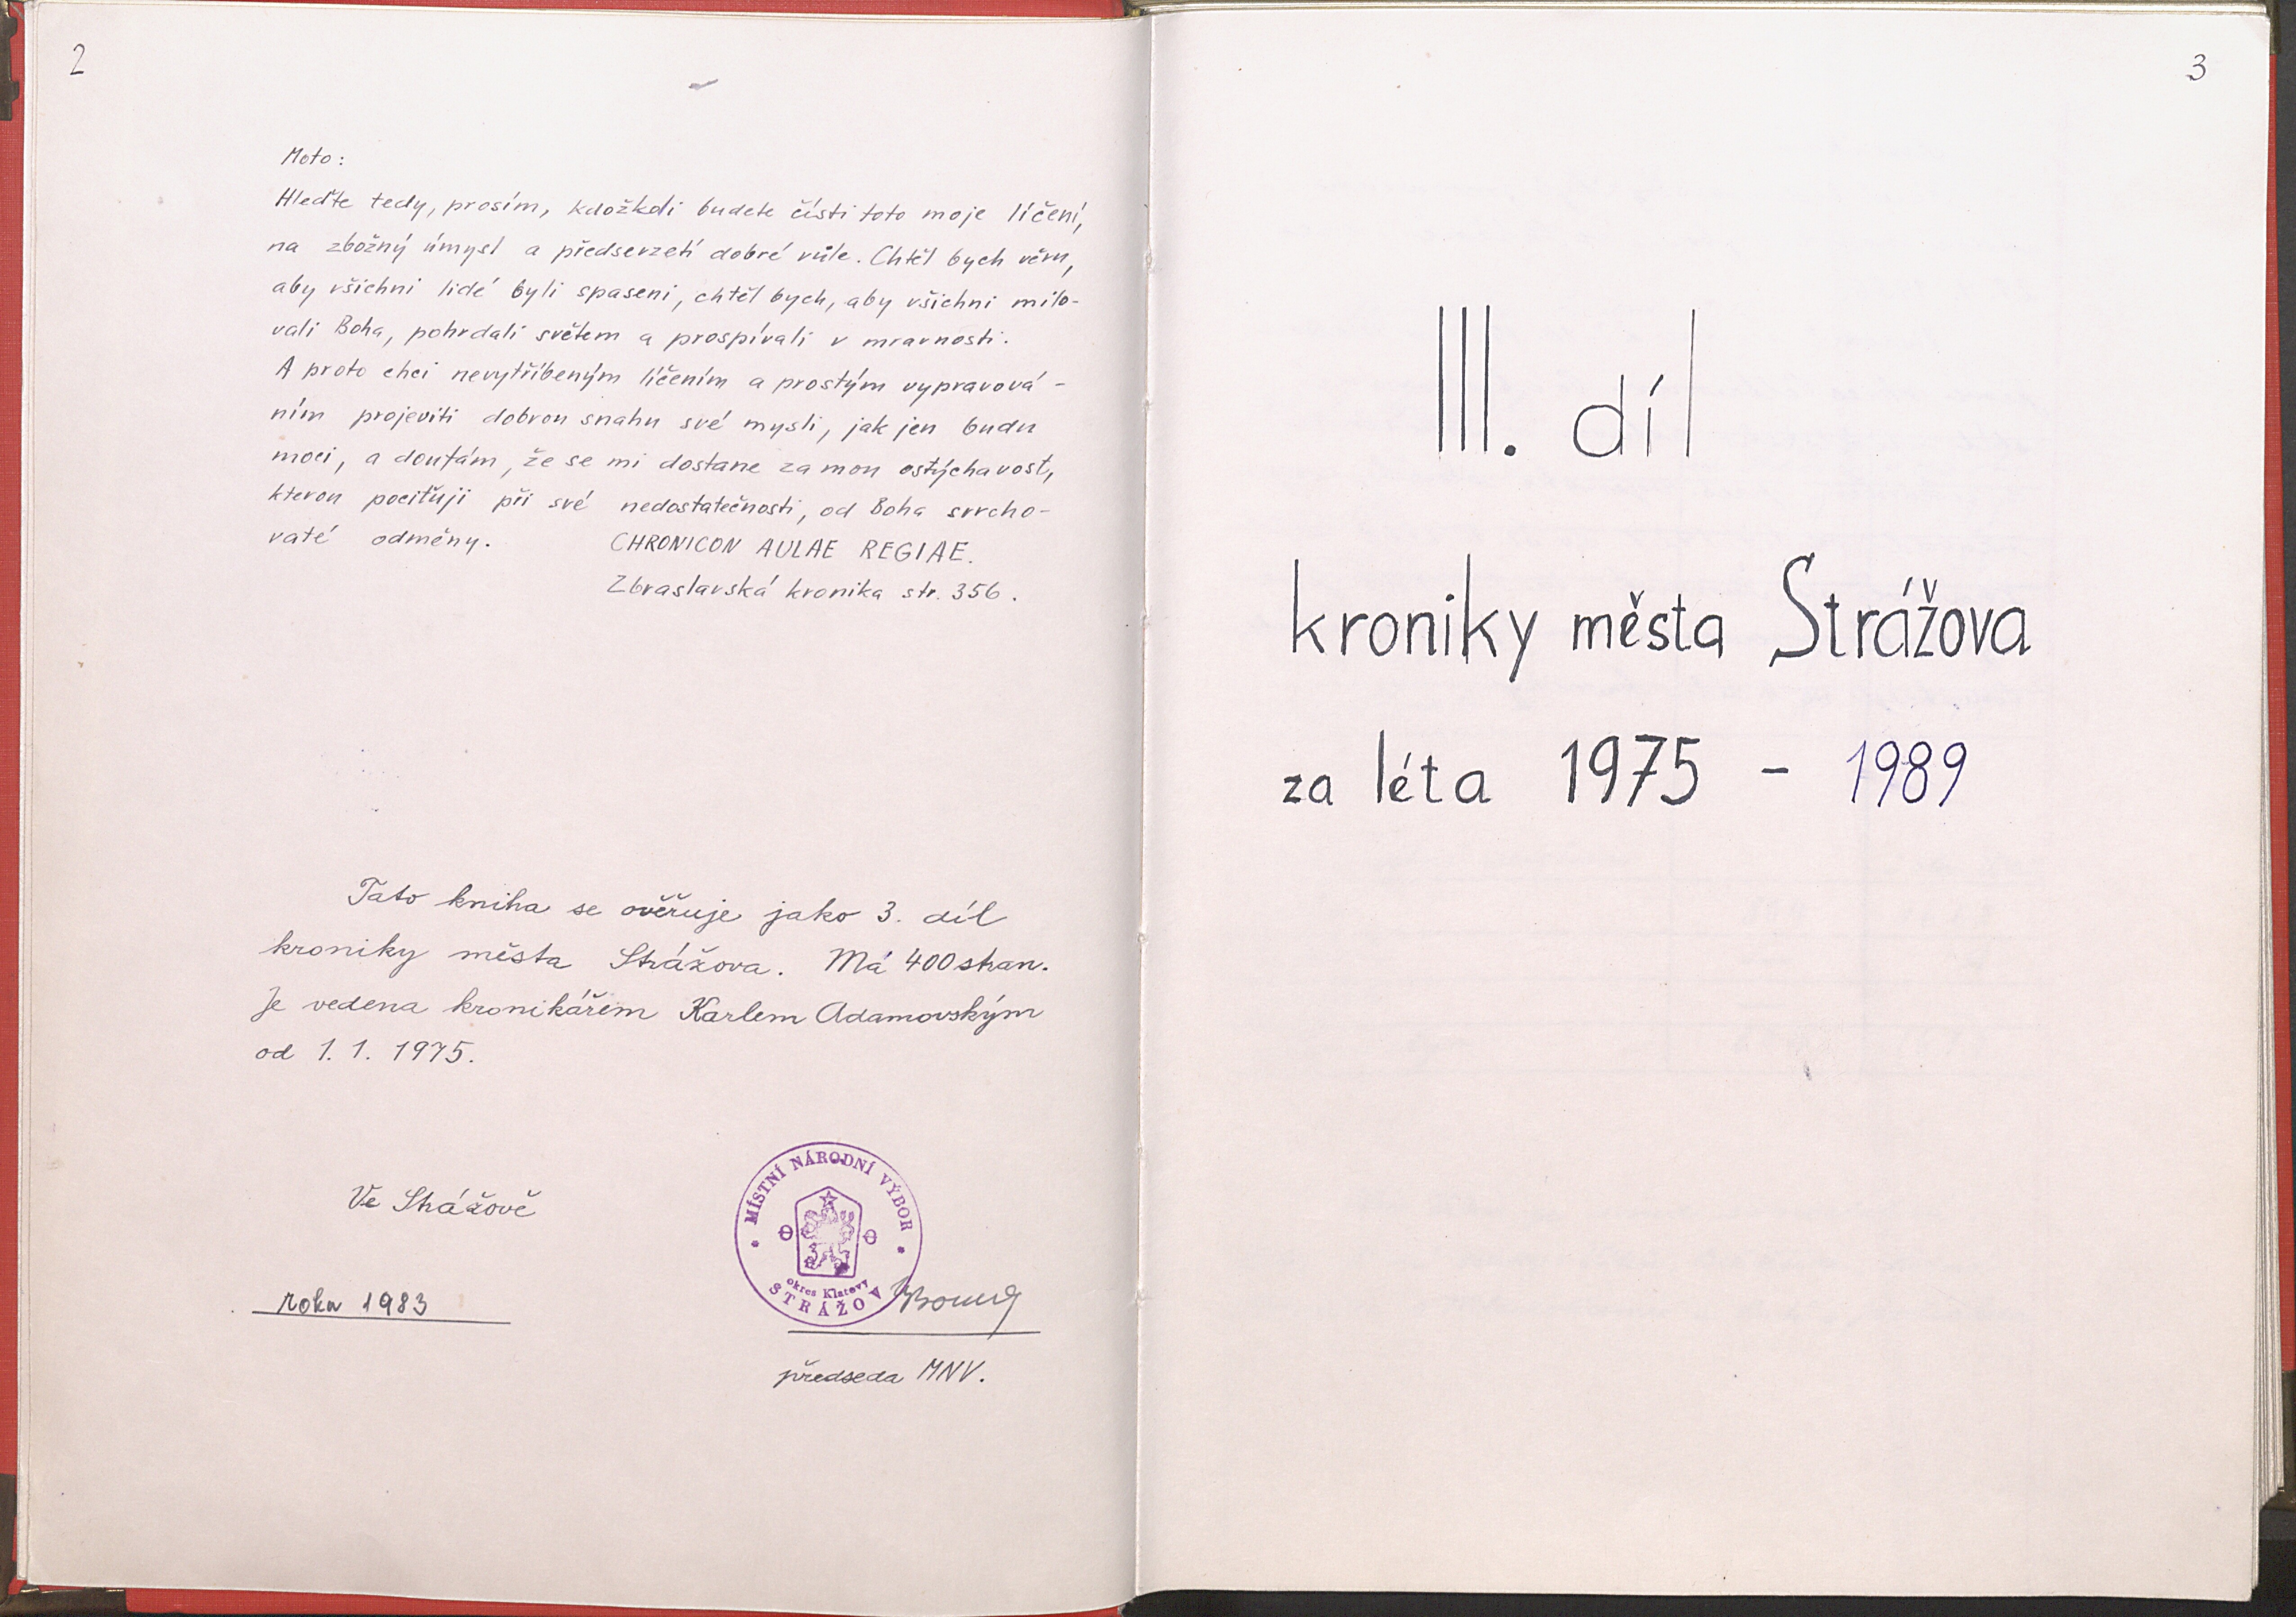 2
Moto:
Hleďte tedy, prosím, kdožkoli budete čísti toto moje líčení,
na zbožný úmysl a předsevzetí dobré vůle. Chtěl bych věru,
aby všichni lidé byli spaseni, chtěl bych, aby všichni milo-
vali Boha, pohrdali světem a prospívali v mravnosti.
A proto chci nevytříbeným líčením a prostým vypravová-
ním projeviti dobrou snahu své mysli, jak jen budu
moci, a doufám, že se mi dostane za mou ostýchavost,
kterou pociťuji při své nedostatečnosti, od Boha svrcho-
vaté odměny. CHRONICON AULAE REGIAE.
Zbraslavská kronika str. 356.
Tato kniha se ověřuje jako 3. díl
kroniky města Strážova. Má 400 stran.
Je vedena kronikářem Karlem Adamovským
od 1. 1. 1975.
Ve Strážově
roku 1983
MÍSTNÍ NÁRODNÍ VÝBOR
okres Klatovy
STRÁŽOV
předseda MNV.
3
III. díl
kroniky města Strážova
za léta 1975 - 1989